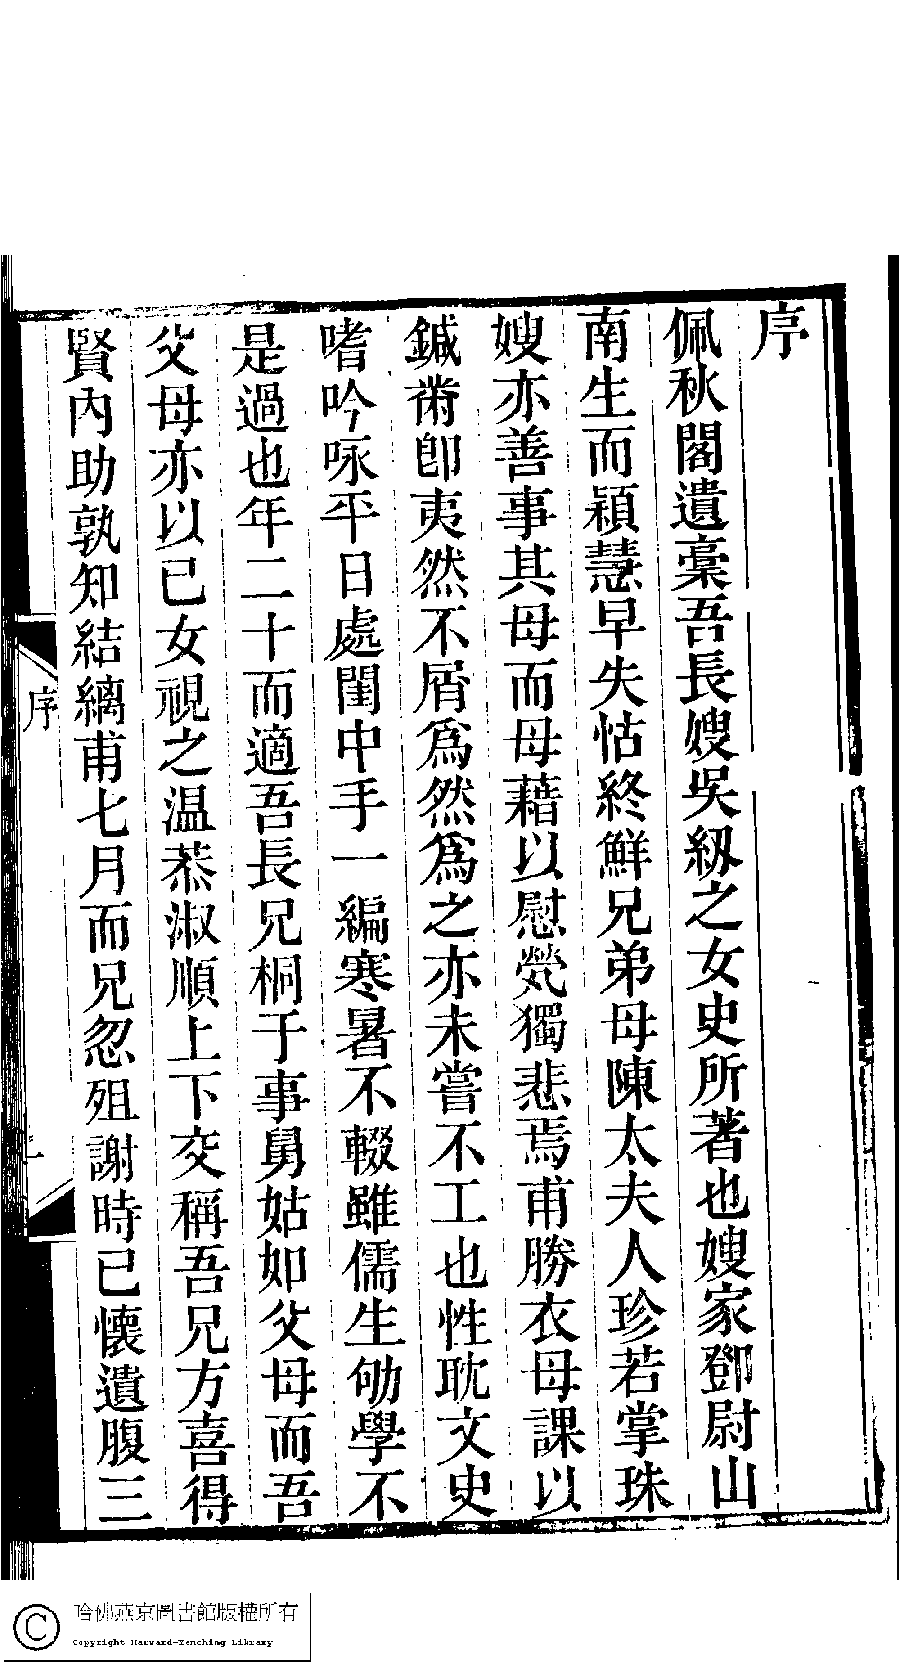 序
佩秋閣遺稾吾長嫂吳紉之女史所著也嫂家鄧尉山
南生而穎慧早失怙終鮮兄弟母陳太夫人珍若掌珠
嫂亦善事其母而母藉以慰煢獨悲焉甫勝衣母課以
鍼黹卽夷然不屑爲然爲之亦未嘗不工也性耽文史
嗜吟咏平日處閨中手一編寒暑不輟雖儒生劬學不
是過也年二十而適吾長兄桐于事舅姑如父母而吾
父母亦以已女視之温恭淑順上下交稱吾兄方喜得
賢內助孰知結縭甫七月而兄忽殂謝時已懷遺腹三
序
一
哈佛燕京圖書館版權所有
Copyright Harvard-Yenching Library